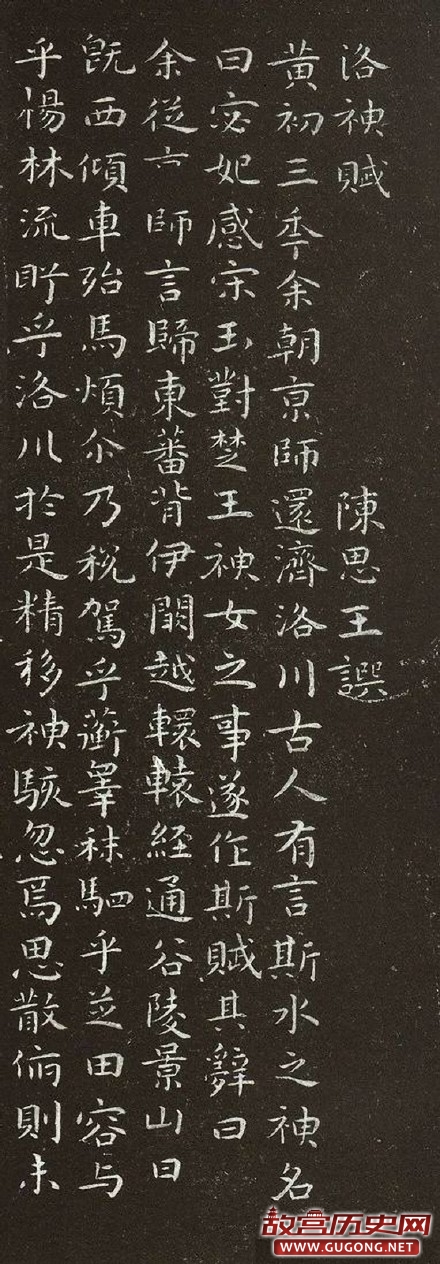 洛神賦 陳思王譔
黄初三年余朝京師還濟洛川古人有言斯水之神名
曰宓妃感宋玉對楚王神女之事遂作斯賦其辭曰
余從京師言歸東蕃背伊闕越轘轅經通谷陵景山日
既西傾車殆馬煩尒乃税駕乎蘅皋秣駟乎芝田容与
乎楊林流眄乎洛川於是精移神駭忽焉思散俯則未
故宫历史网
www.GUGONG.NET